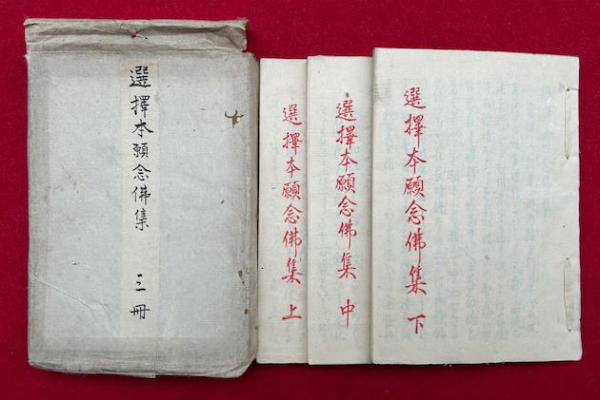 選擇本願念佛集 三冊
選擇本願念佛集 上
選擇本願念佛集 中
選擇本願念佛集 下